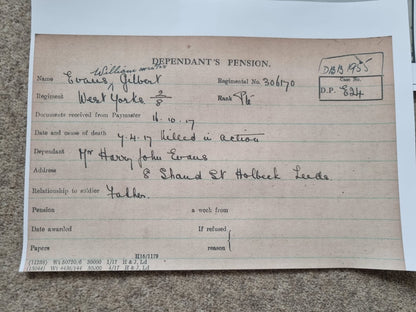 DEPENDANT'S PENSION.
DBB 1955
William
Name Evans, Gilbert Regimental No. 306170
Case No.
D.P. E24
Regiment West Yorks 2/8 Rank Pte
Documents received from Paymaster 16.10.17
Date and cause of death 7.4.17 Killed in action
Dependant Mr Harry John Evans
Address 8 Shand St Holbeck Leeds.
Relationship to soldier Father.
Pension a week from
Date awarded If refused
Papers reason
H16/1179
30000 1/17 H & J, Ld
H & J, Ld